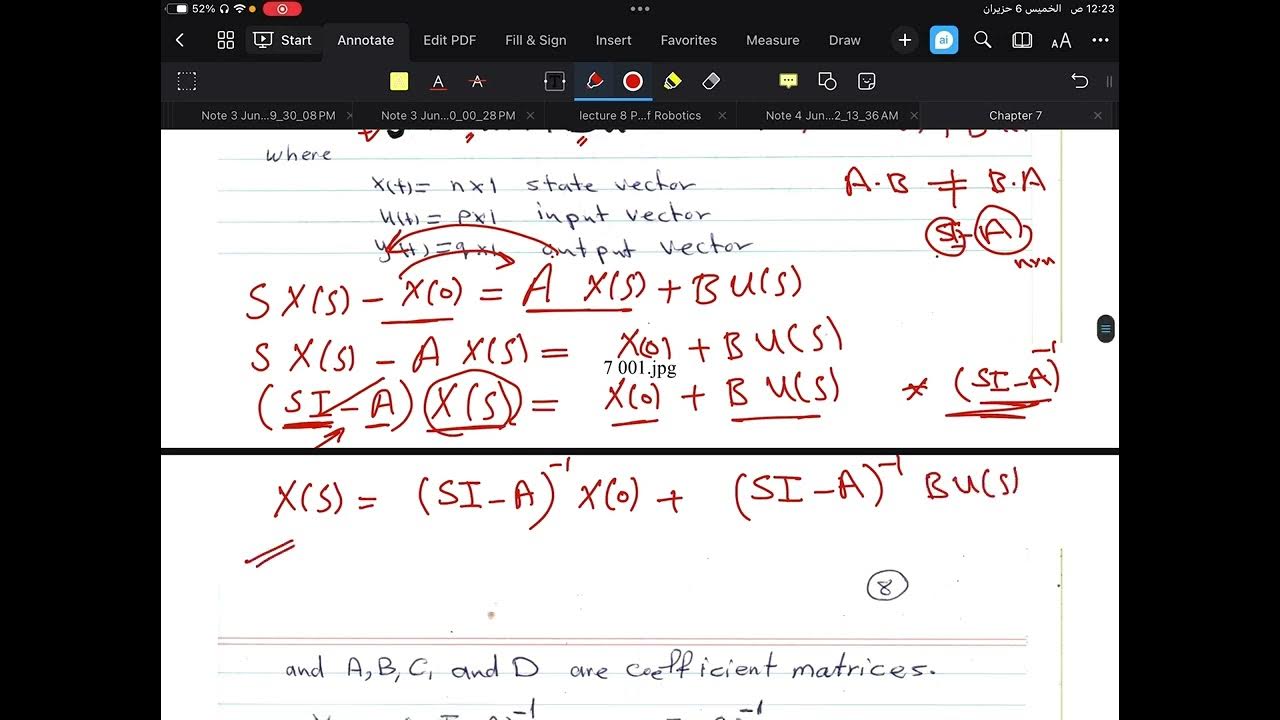 52% الخميس 6 حزيران 12:23 ص
Start Annotate Edit PDF Fill & Sign Insert Favorites Measure Draw ai
Note 3 Jun...9_30_08 PM Note 3 Jun...0_00_28 PM lecture 8 P...f Robotics Note 4 Jun...2_13_36 AM Chapter 7
where
x(t)= n×1 state vector
A·B ≠ B·A
u(t)= p×1 input vector
SI-A
y(t)=q×1 output vector
n×n
S X(S) - X(0) = A X(S) + B U(S)
S X(S) - A X(S) = X(0) + B U(S)
7 001.jpg
(SI-A) X(S) = X(0) + B U(S) * (SI-A)⁻¹
X(S) = (SI-A)⁻¹ X(0) + (SI-A)⁻¹ B U(S)
8
and A, B, C, and D are coefficient matrices.